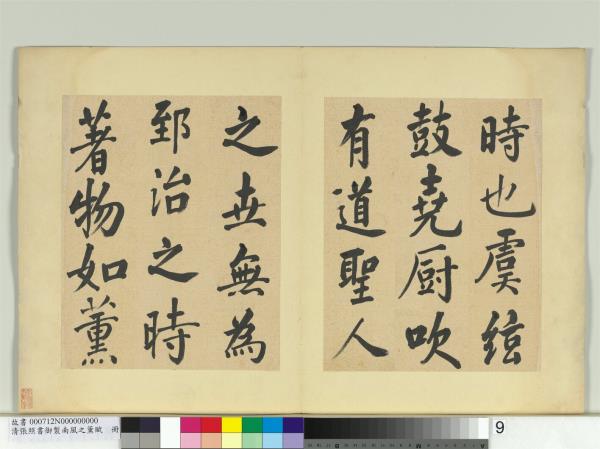 時也虞絃
鼓堯厨吹
有道聖人
之世無為
郅治之時
著物如薰
故書 000712N000000000
清張照書御製南風之薰賦 冊
9